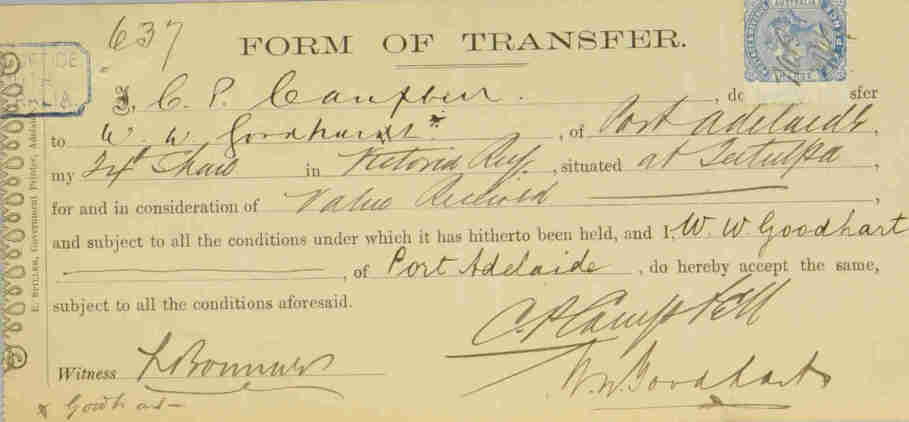 637
FORM OF TRANSFER.
I, C. P. Campbell , do sfer
to W. W. Goodhardt * , of Port Adelaide,
my 24th Share in Victoria Reef, situated at Teetulpa ,
for and in consideration of Value Received ,
and subject to all the conditions under which it has hitherto been held, and I, W. W. Goodhart
, of Port Adelaide , do hereby accept the same,
subject to all the conditions aforesaid.
C. P. Campbell
Witness
W. W. Goodhart
* Goodhart
E. SPILLER, Government Printer, Adelaide
AUSTRALIA